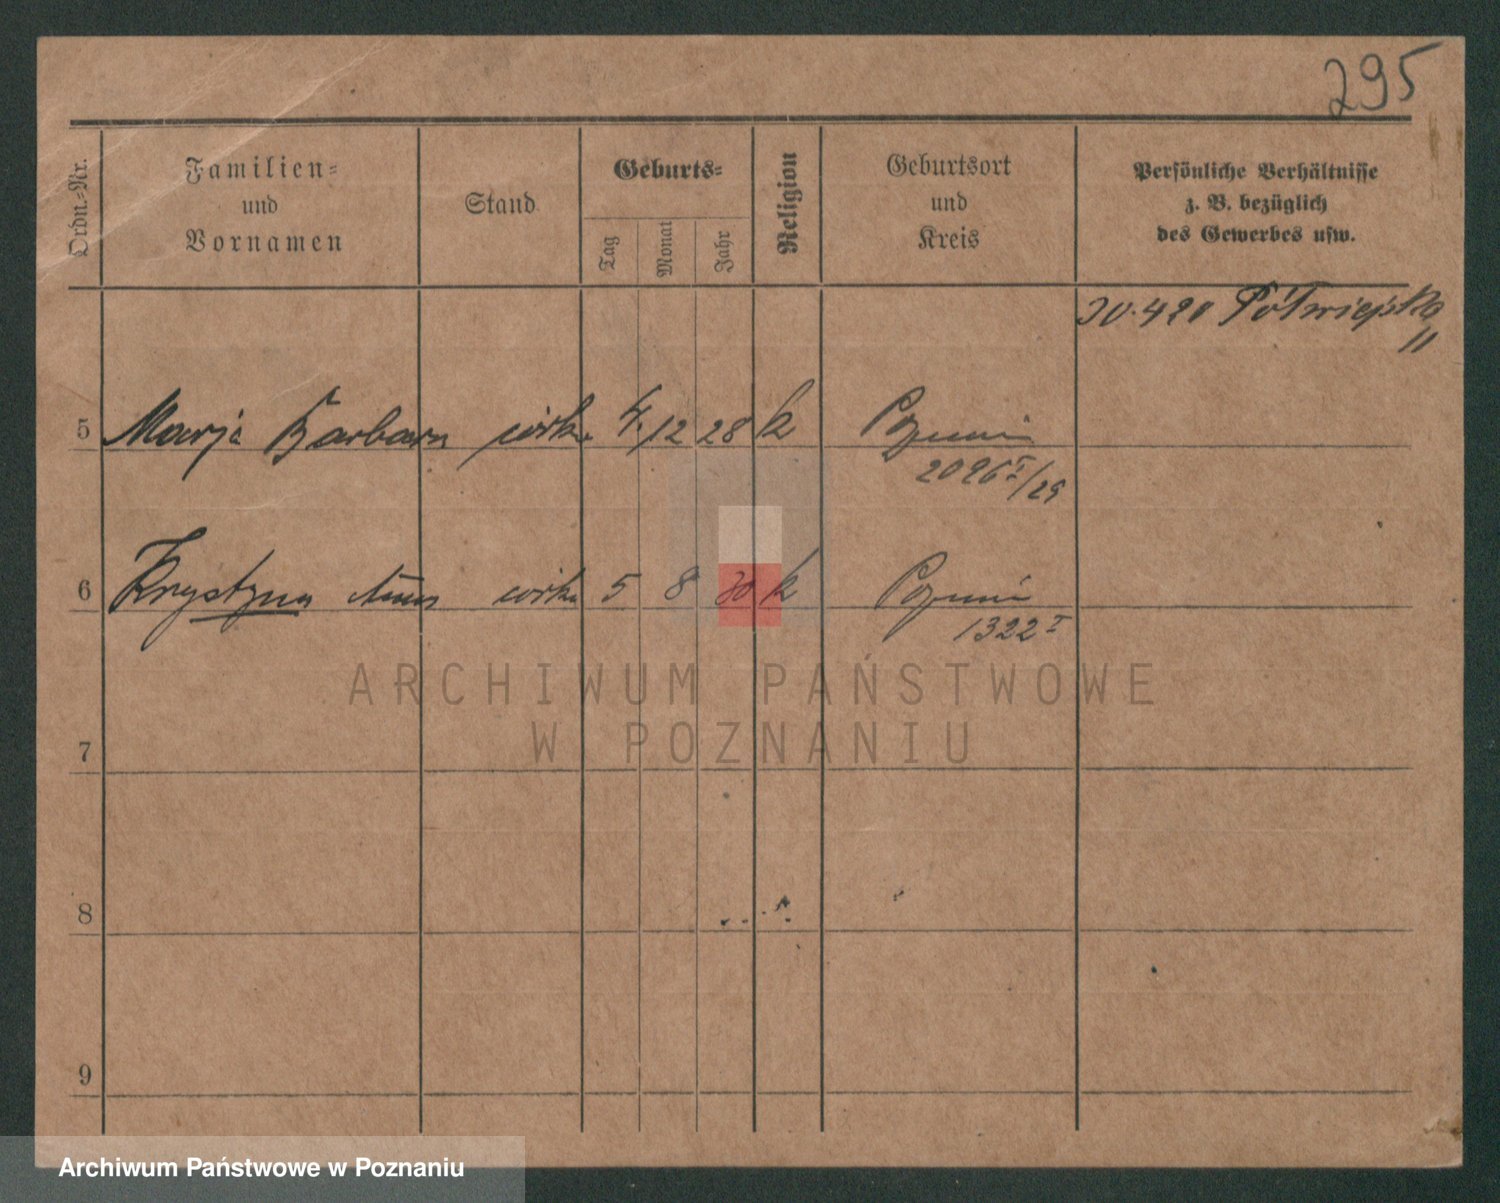 295
Ordn.-Nr.
Familien-
und
Vornamen
Stand
Geburts-
Tag
Monat
Jahr
Religion
Geburtsort
und
Kreis
Persönliche Verhältnisse
z. B. bezüglich
des Gewerbes usw.
Półwiejska
11
5 Marja Barbara córka 4. 12 28 k Poznań
2096 I/29
6 Krystyna Anna córka 5 8 30 k Poznań
1322 I
7
8
9
ARCHIWUM PAŃSTWOWE
W POZNANIU
Archiwum Państwowe w Poznaniu